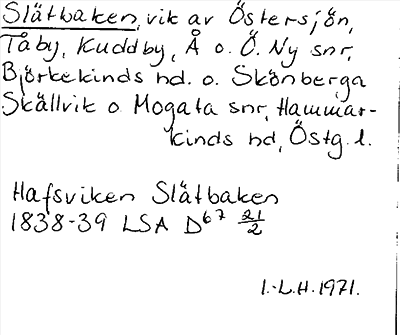 Slätbaken, vik av Östersjön,
Tåby, Kuddby, Å o. Ö. Ny snr,
Björkekinds hd. o. Skönberga
Skällvik o Mogata snr, Hammar-
kinds hd, Östg. l.
Hafsviken Slätbaken
1838-39 LSA D⁶⁷ 21/2
I.-L.H. 1971.